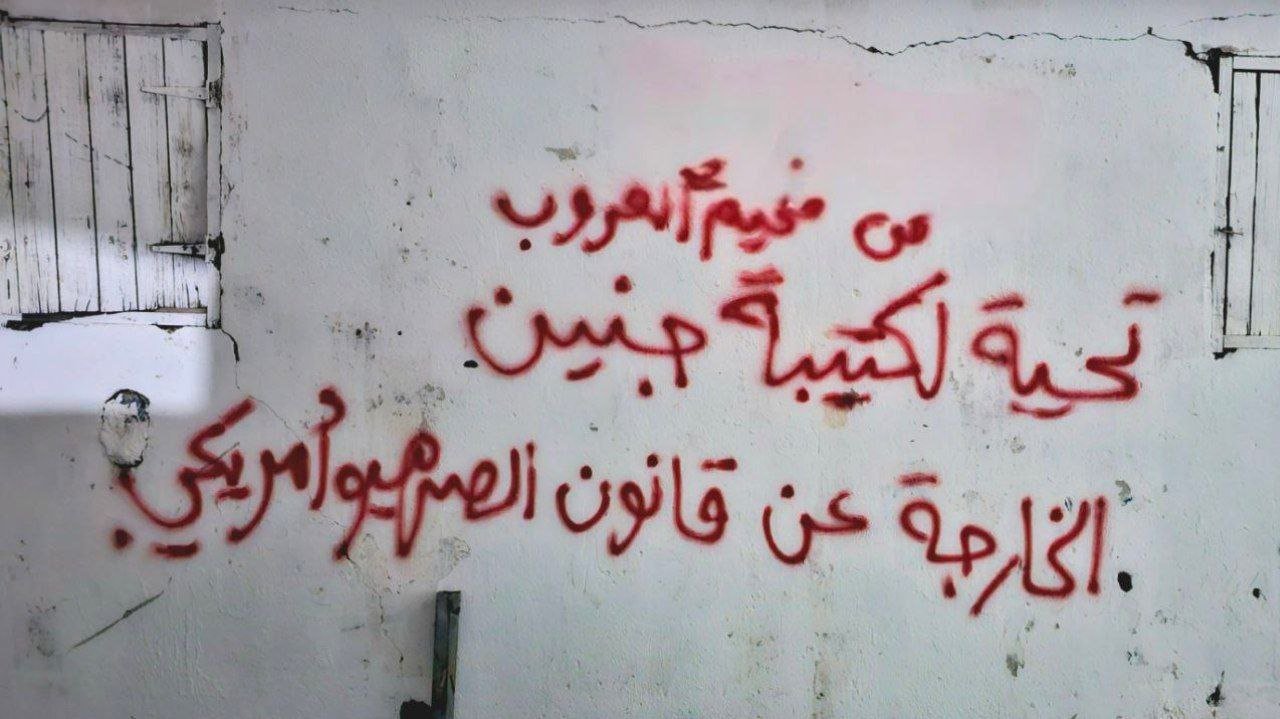 من مخيم العروب
تحية لكتيبة جنين
الخارجة عن قانون الصهيوأمريكي